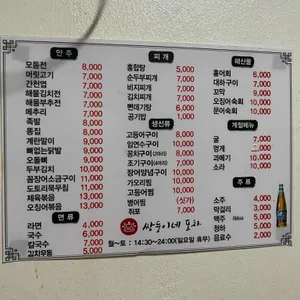 안 주
모듬전 8,000
머릿고기 7,000
간천엽 7,000
해물김치전 7,000
해물부추전 7,000
메추리 7,000
족발 8,000
똥집 8,000
계란말이 9,000
뼈없는닭발 9,000
오돌뼈 9,000
두부김치 9,000
꼼장어소금구이 11,000
도토리묵무침 11,000
제육볶음 13,000
오징어볶음 13,000
면 류
라면 4,000
국수 6,000
칼국수 7,000
김치우동
찌 개
홍합탕 5,000
순두부찌개 7,000
비지찌개 7,000
김치찌개 7,000
뻔데기탕 6,000
공기밥 1,000
생선류
고등어구이 8,000
임연수구이 10,000
꽁치구이 10,000
조기구이 10,000
장어양념구이 10,000
가오리찜 10,000
고등어찜 10,000
병어찜 (싯가)
쥐포 7,000
해산물
홍어회 6,000
대하구이 7,000
꼬막 9,000
오징어숙회 10,000
문어숙회 10,000
계절메뉴
굴 7,000
멍게
과메기 10,000
소라 10,000
주 류
소주 4,000
막걸리 3,000
맥주
청하 5,000
음료수 2,000
쌍둥이네 포차
월~토 : 14:30~24:00(일요일 휴무)